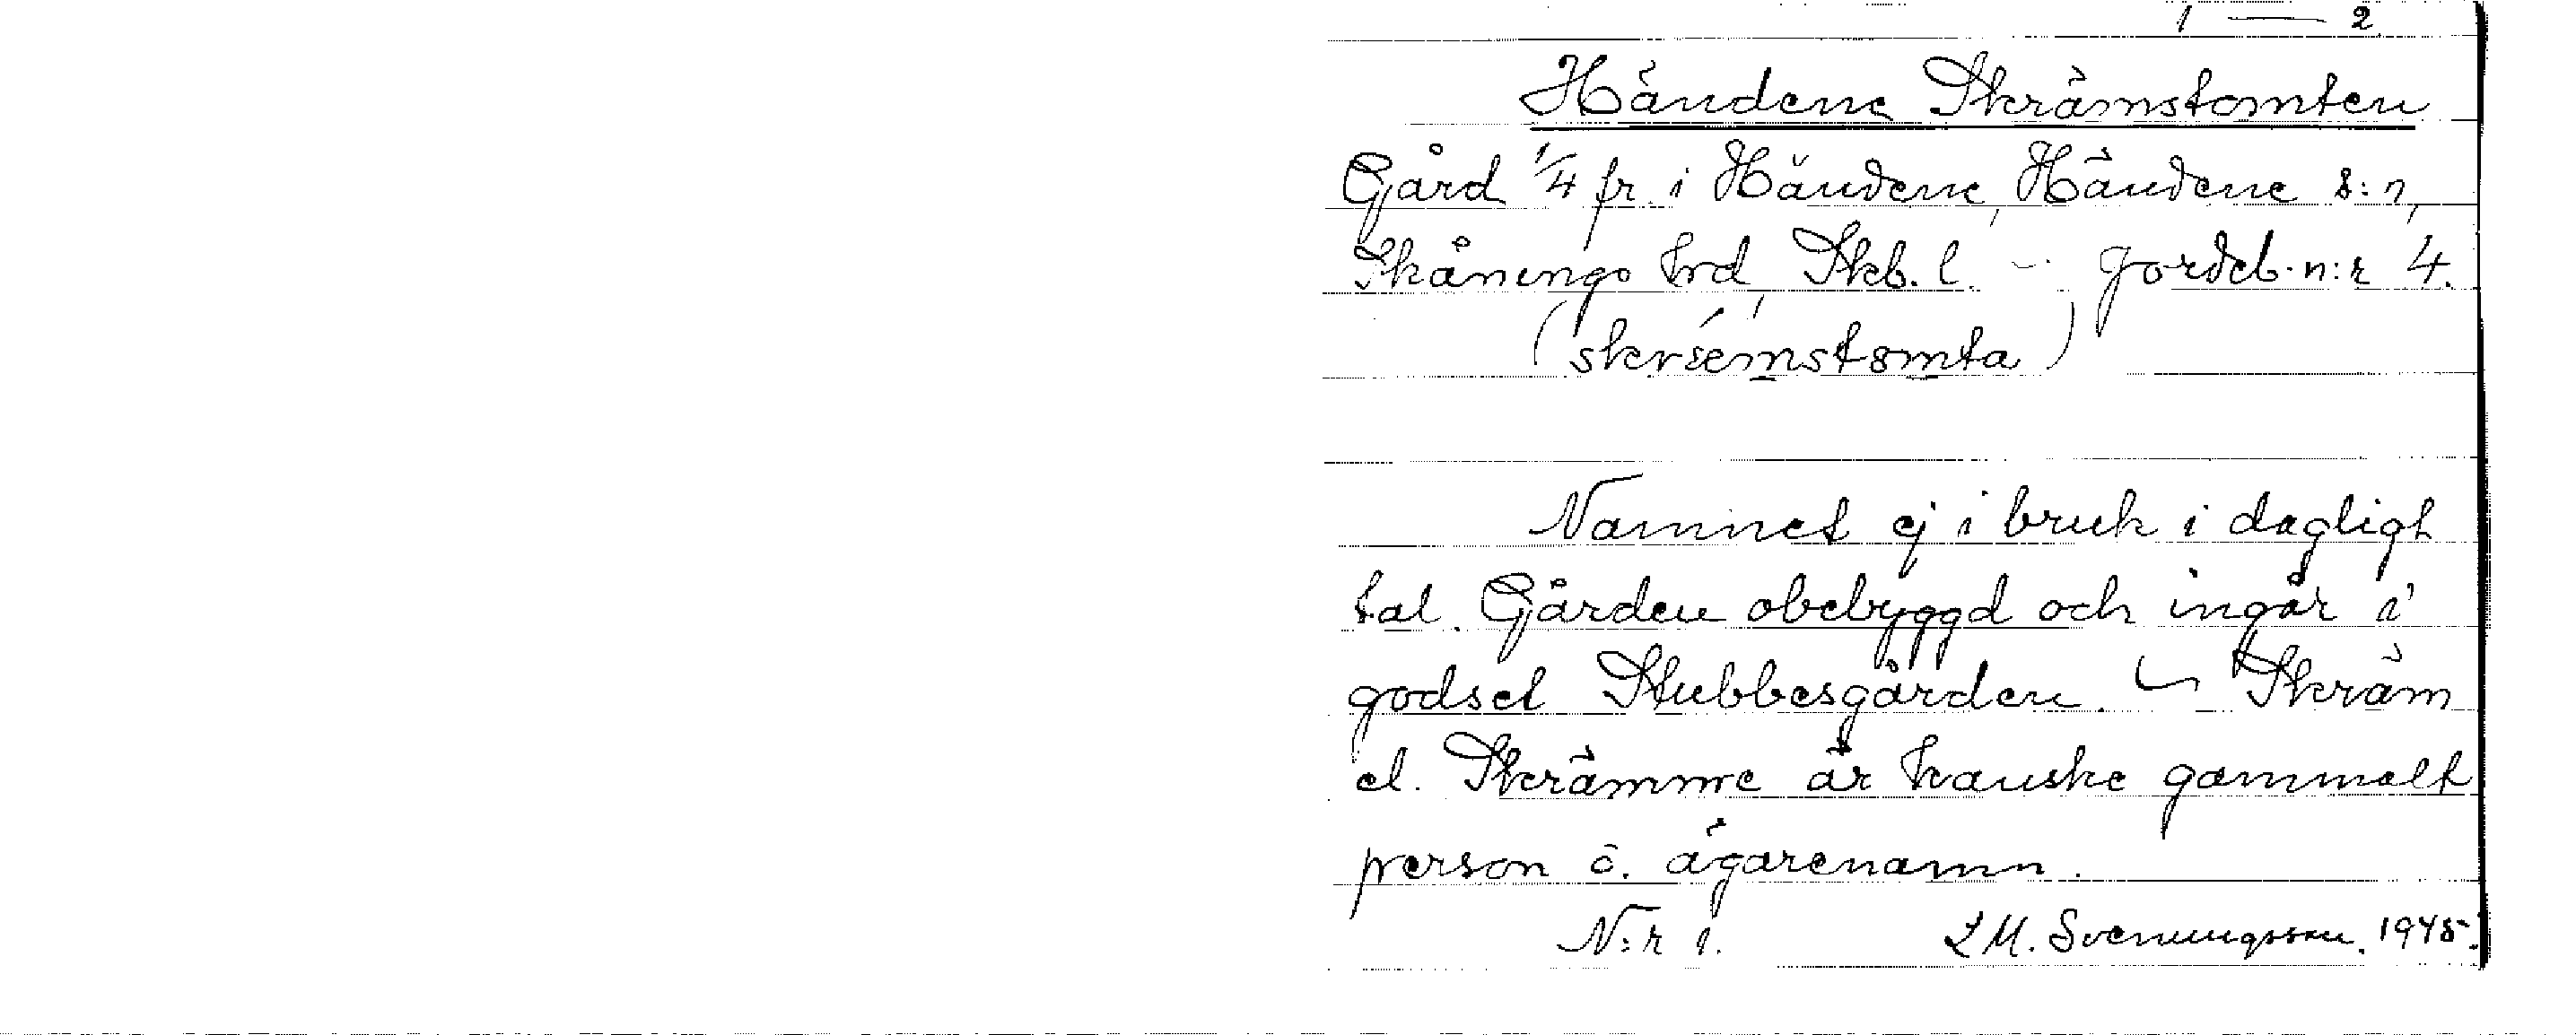 1 — 2
Händene Skrämstomten
Gård 1/4 fr. i Händene, Händene s:n,
Skånings hrd, Skb. l. – Jordeb. n:r 4.
(skræmstomta)
Namnet ej i bruk i dagligt
tal. Gården obebyggd och ingår i
godset Stubbesgården. – Skräm
el. Skrämme är kanske gammalt
person o. ägarenamn.
N:r 1. L M. Svenungsson. 1945.